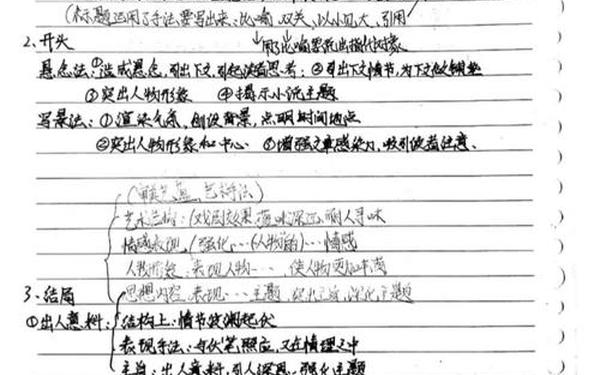 (标题运用了手法要写出来:比喻、双关、以小见大、引用
2、开头
用了比喻要写出指代对象
悬念法:①造成悬念,引出下文,引起读者思考;②引出下文情节,为下文做铺垫
③突出人物形象 ④揭示小说主题
写景法:①渲染气氛,创设背景,点明时间地点
②突出人物形象和中心 ③增强文章感染力,吸引读者注意、
艺术手法)
艺术结构:(戏剧效果 意味深远,耐人寻味
情感表现(强化…(人物)…情感
人物形象 表现人物… 使人物更加丰满
3、结局
思想内容 表现…主题,突出主旨,深化主题
①出人意料:结构上:情节波澜起伏
表现手法:与伏笔照应,又在情理之中
主旨:出人意料,引人深思,强化主题